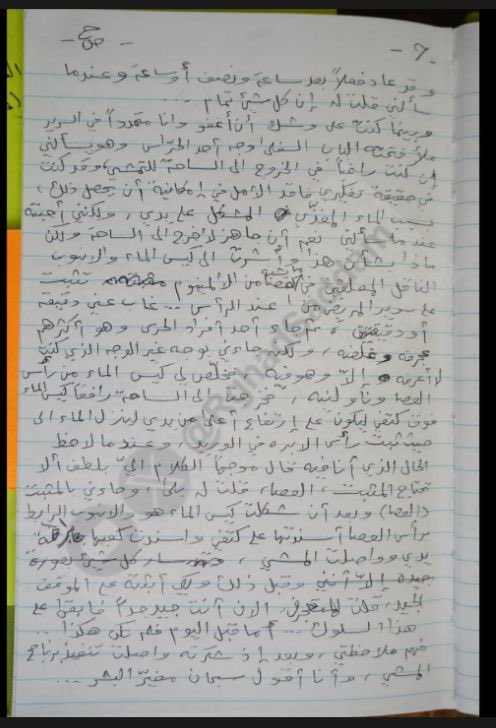 -٦-
وقد عاد فعلاً بعد ساعة ونصف أو ساعة وعندما
سألني قلت له إن كل شيء تمام ...
وبينما كنت على وشك أن أغفو وأنا متمدداً في السرير
فتحة الباب السفلى أوجه أحد الحراس وهو يسألني
إن كنت راغباً في الخروج الى الساحة للتمشي، وقد كنت
في حقيقة تفكيري فاقد الأمل في إمكانية أن يحصل ذلك،
بسبب الماء المغذي المشكل على يدي، ولكنني أجبته
عندما سألني نعم أنا جاهز لأخرج الى الساحة ولكن
ماذا بشأن هذا وأشرت الى كيس الماء والانبوب
الناقل المعلق في من الألمنيوم تثبت
على سرير المريض من عند الرأس .. غاب عني دقيقة
أو دقيقتين، وجاء أحد أفراد الحرس وهو أكثرهم
وغلظة، ولكنه جاءني بوجه غير الوجه الذي كنت
لا أعرفه إلا وهو فيه، خلّص لي كيس الماء من رأس
العصا وناولنيه، خرجت الى الساحة رافعاً كيس الماء
فوق كتفي ليكون على إرتفاع أعلى من يدي لينزل الماء الى
حيث تثبت رأس الابرة في الوريد، وعندما لاحظ
الحال الذي أنا فيه قال موجهاً الكلام اليّ بلطف ألا
تحتاج المثبت، العصا، قلت له بلى، وجاءني بالمثبت
(العصا) وبعد أن شكلت كيس الماء هو والانبوب الرابط
برأس العصا أسندتها على كتفي وأسندت كعبها
يدي وواصلت المشي، وسار كل شيء بصورة
جيدة إلا أنني وقبل ذلك أثنيته على الموقف
الجيد، قلت الان أنت جيد جداً فابقى على
هذا السلوك ... أما قبل اليوم فلم تكن هكذا ...
فهم ملاحظتي، وبعد إذ شكرته واصلت تنفيذ برنامج
المشي، وأنا أقول سبحان مغيّر البشر ...
@RghadSaddam